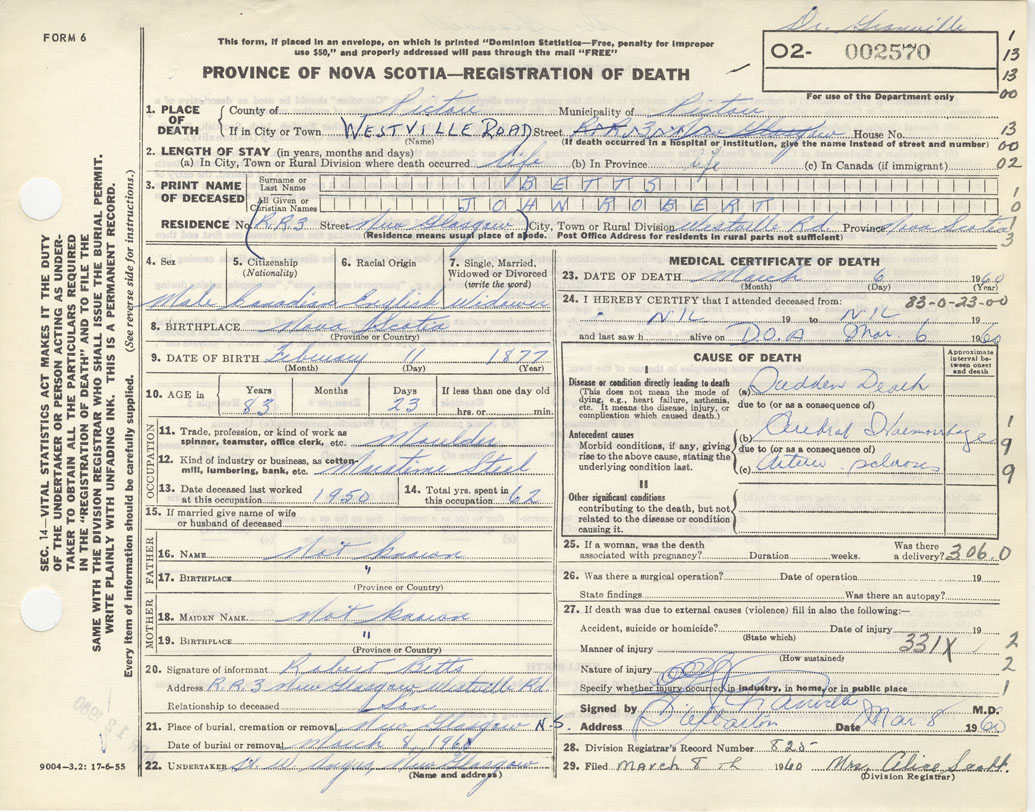 FORM 6
This form, if placed in an envelope, on which is printed "Dominion Statistics—Free, penalty for improper
use $50," and properly addressed will pass through the mail "FREE"
PROVINCE OF NOVA SCOTIA—REGISTRATION OF DEATH
Dr. Granville
02- 002570
For use of the Department only
1
13
13
00
13
00
02
1
0
1
3
1. PLACE OF DEATH
County of Pictou Municipality of Pictou
If in City or Town WESTVILLE ROAD Street R.R. 3 New Glasgow House No.
(Name) (If death occurred in a hospital or institution, give the name instead of street and number)
2. LENGTH OF STAY (in years, months and days)
(a) In City, Town or Rural Division where death occurred life (b) In Province life (c) In Canada (if immigrant)
3. PRINT NAME OF DECEASED
Surname or Last Name BETTS
All Given or Christian Names JOHN ROBERT
RESIDENCE No. R.R.3 Street New Glasgow City, Town or Rural Division Westville Rd. Province Nova Scotia
(Residence means usual place of abode. Post Office Address for residents in rural parts not sufficient)
4. Sex 5. Citizenship (Nationality) 6. Racial Origin 7. Single, Married, Widowed or Divorced (write the word)
Male Canadian English Widower
8. BIRTHPLACE Nova Scotia
(Province or Country)
9. DATE OF BIRTH February 11 1877
(Month) (Day) (Year)
10. AGE in Years Months Days If less than one day old
83 23 hrs. or min.
OCCUPATION
11. Trade, profession, or kind of work as spinner, teamster, office clerk, etc. Moulder
12. Kind of industry or business, as cotton-mill, lumbering, bank, etc. Maritime Steel
13. Date deceased last worked at this occupation 1950
14. Total yrs. spent in this occupation 62
15. If married give name of wife or husband of deceased
FATHER
16. NAME Not known
17. BIRTHPLACE "
(Province or Country)
MOTHER
18. MAIDEN NAME Not known
19. BIRTHPLACE "
(Province or Country)
20. Signature of informant Robert Betts
Address R.R.3 New Glasgow, Westville Rd.
Relationship to deceased Son
21. Place of burial, cremation or removal New Glasgow N.S.
Date of burial or removal March 8, 1960
22. UNDERTAKER H. W. Angus New Glasgow
(Name and address)
MEDICAL CERTIFICATE OF DEATH
23. DATE OF DEATH March 6 1960
(Month) (Day)
24. I HEREBY CERTIFY that I attended deceased from: 83-0-23-00
NIL 19 to NIL 19
and last saw h alive on D.O.A Mar. 6 1960
CAUSE OF DEATH
Approximate interval between onset and death
I
Disease or condition directly leading to death
(This does not mean the mode of dying, e.g., heart failure, asthenia, etc. It means the disease, injury, or complication which caused death.)
(a) Sudden Death
due to (or as a consequence of)
Antecedent causes
Morbid conditions, if any, giving rise to the above cause, stating the underlying condition last.
(b) Cerebral Haemorrhage
due to (or as a consequence of)
(c) Arterio sclerosis
1
9
9
II
Other significant conditions contributing to the death, but not related to the disease or condition causing it.
25. If a woman, was the death associated with pregnancy? Duration weeks. Was there a delivery? 306.0
26. Was there a surgical operation? Date of operation 19
State findings Was there an autopsy?
27. If death was due to external causes (violence) fill in also the following:—
Accident, suicide or homicide? Date of injury 19
(State which)
Manner of injury 331X
(How sustained)
Nature of injury
Specify whether injury occurred in industry, in home, or in public place
2
2
1
Signed by Granville M.D.
Address Stellarton Date Mar 8 1960
28. Division Registrar's Record Number 825
29. Filed March 8th 1960 Mrs. Alice Scott.
(Division Registrar)
SEC. 14—VITAL STATISTICS ACT MAKES IT THE DUTY
OF THE UNDERTAKER OR PERSON ACTING AS UNDER-
TAKER TO OBTAIN ALL THE PARTICULARS REQUIRED
IN THE "REGISTRATION OF DEATH" AND FILE THE
SAME WITH THE DIVISION REGISTRAR WHO SHALL ISSUE THE BURIAL PERMIT.
WRITE PLAINLY WITH UNFADING INK. THIS IS A PERMANENT RECORD.
Every item of information should be carefully supplied. (See reverse side for instructions.)
9004—3.2: 17-6-55